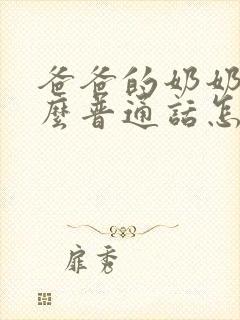 爸爸的奶奶
麼普通話怎
扉秀